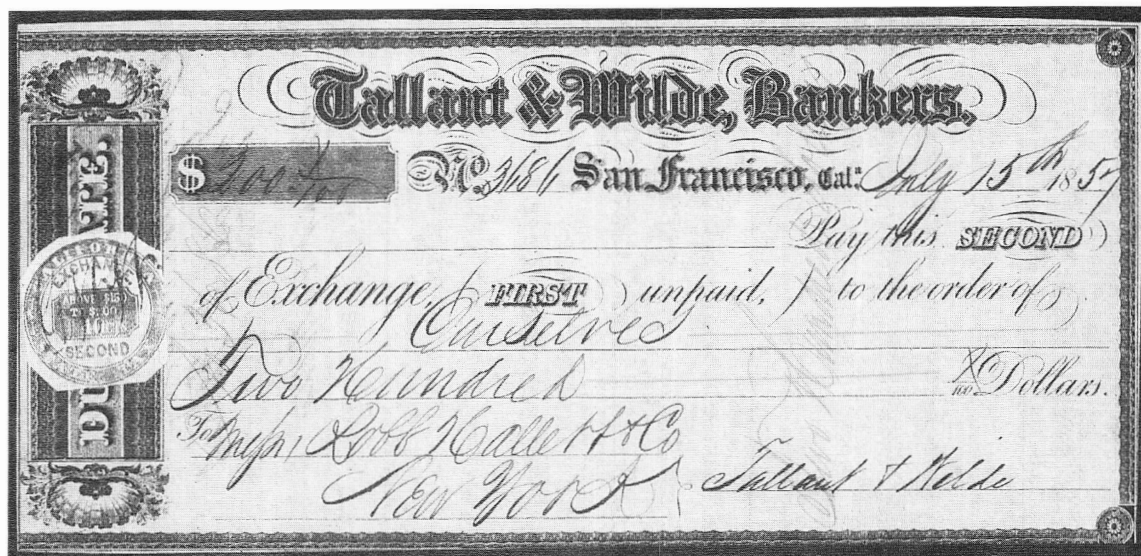 Tallant & Wilde, Bankers.
$ 200 x/100 No. 3686 San Francisco, Cal: July 15th 1857
Pay this SECOND
of Exchange, FIRST unpaid, to the order of
Ourselves
Two Hundred x/100 Dollars.
To Messrs Robb Hallett & Co
New York
Tallant & Wilde
DUPLICATE.
EXCHANGE
ABOVE $150
SECOND